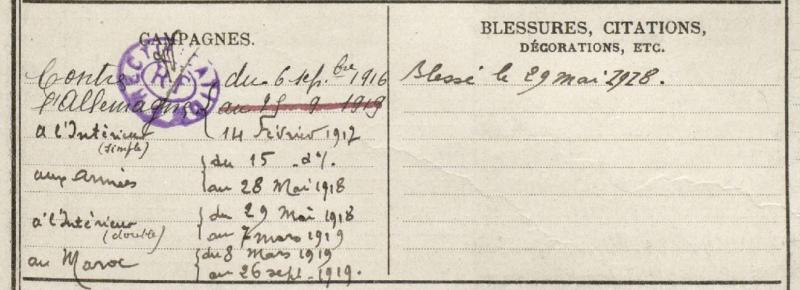 CAMPAGNES.
Contre du 6 sepbre 1916
l'Allemagne au 19 9 1919
à l'Intérieur 14 Février 1917
(simple)
du 15 d°.
aux armées
au 28 Mai 1918
du 29 Mai 1918
à l'Intérieur
(double) au 7 mars 1919
du 8 mars 1919
au Maroc
au 26 sept. 1919.
BLESSURES, CITATIONS,
DÉCORATIONS, ETC.
Blessé le 29 mai 1918.